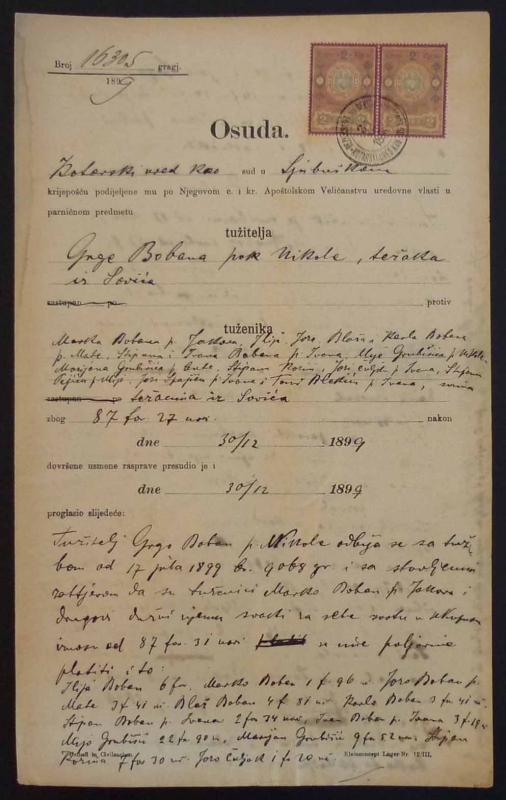 Broj 16305 gragj.
1899
Osuda.
Kotarski ured kao sud u Ljubuškom
krijepošću podijeljene mu po Njegovom c. i kr. Apoštolskom Veličanstvu uredovne vlasti u
parničnom predmetu
tužitelja
Grge Bobana pok Nikole, težaka
iz Sovića
zastupan po protiv
tuženika
Marka Bobana p. Jakova, Ilije, Joze, Blaža, Karla Bobana
p. Mate, Stipana i Ivana Bobana p. Ivana, Mije Grubišića p. Nikole
Marijana Grubišića p. Ante, Stipana p. Ivana, Stipana
p. Mije, p. Ivana i p. Ivana, sviju
zastupan po težaka iz Sovića
zbog 87 for 27 nov. nakon
dne 30/12 1899
dovršene usmene rasprave presudio je i
dne 30/12 1899
proglasio slijedeće:
Tužitelj Grgo Boban p. Nikole odbija se sa tuž-
bom od 17 jula 1899 br. 9068 gr i sa stavljenim
zahtjevom da su tuženici Marko Boban p. Jakova i
drugovi dužni njemu svaki za sebe svotu u ukupnom
iznosu od 87 for 31 nov
platiti i to:
Ilija Boban 6 for, Marko Boban 1 f 96 n. Jozo Boban p.
Mate 3 f 41 n. Blaž Boban 4 f 81 nov. Karlo Boban 3 f 41 n.
Stipan Boban p. Ivana 2 for 34 nov, Ivan Boban p. Ivana 3 f
Mijo Grubišić 22 for 90 n., Marijan Grubišić 9 for 52 nov. Stipan
7 for 30 nov. Jozo 1 for 20 nč.
Urtheil in Civilsachen. Kleinconcept Lager-Nr. 12/III.